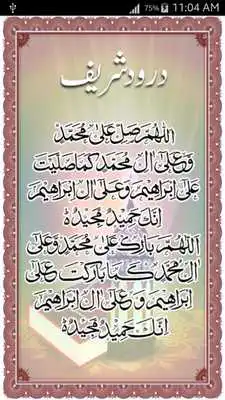 75% 11:04 AM
درود شریف
اَللّٰهُمَّ صَلِّ عَلٰی مُحَمَّدٍ
وَّعَلٰۤی اٰلِ مُحَمَّدٍ كَمَا صَلَّيْتَ
عَلٰۤی اِبْرَاهِيْمَ وَعَلٰۤی اٰلِ اِبْرَاهِيْمَ
اِنَّكَ حَمِيْدٌ مَّجِيْدٌ
اَللّٰهُمَّ بَارِكْ عَلٰی مُحَمَّدٍ وَّعَلٰۤی
اٰلِ مُحَمَّدٍ كَمَا بَارَكْتَ عَلٰۤی
اِبْرَاهِيْمَ وَعَلٰۤی اٰلِ اِبْرَاهِيْمَ
اِنَّكَ حَمِيْدٌ مَّجِيْدٌ